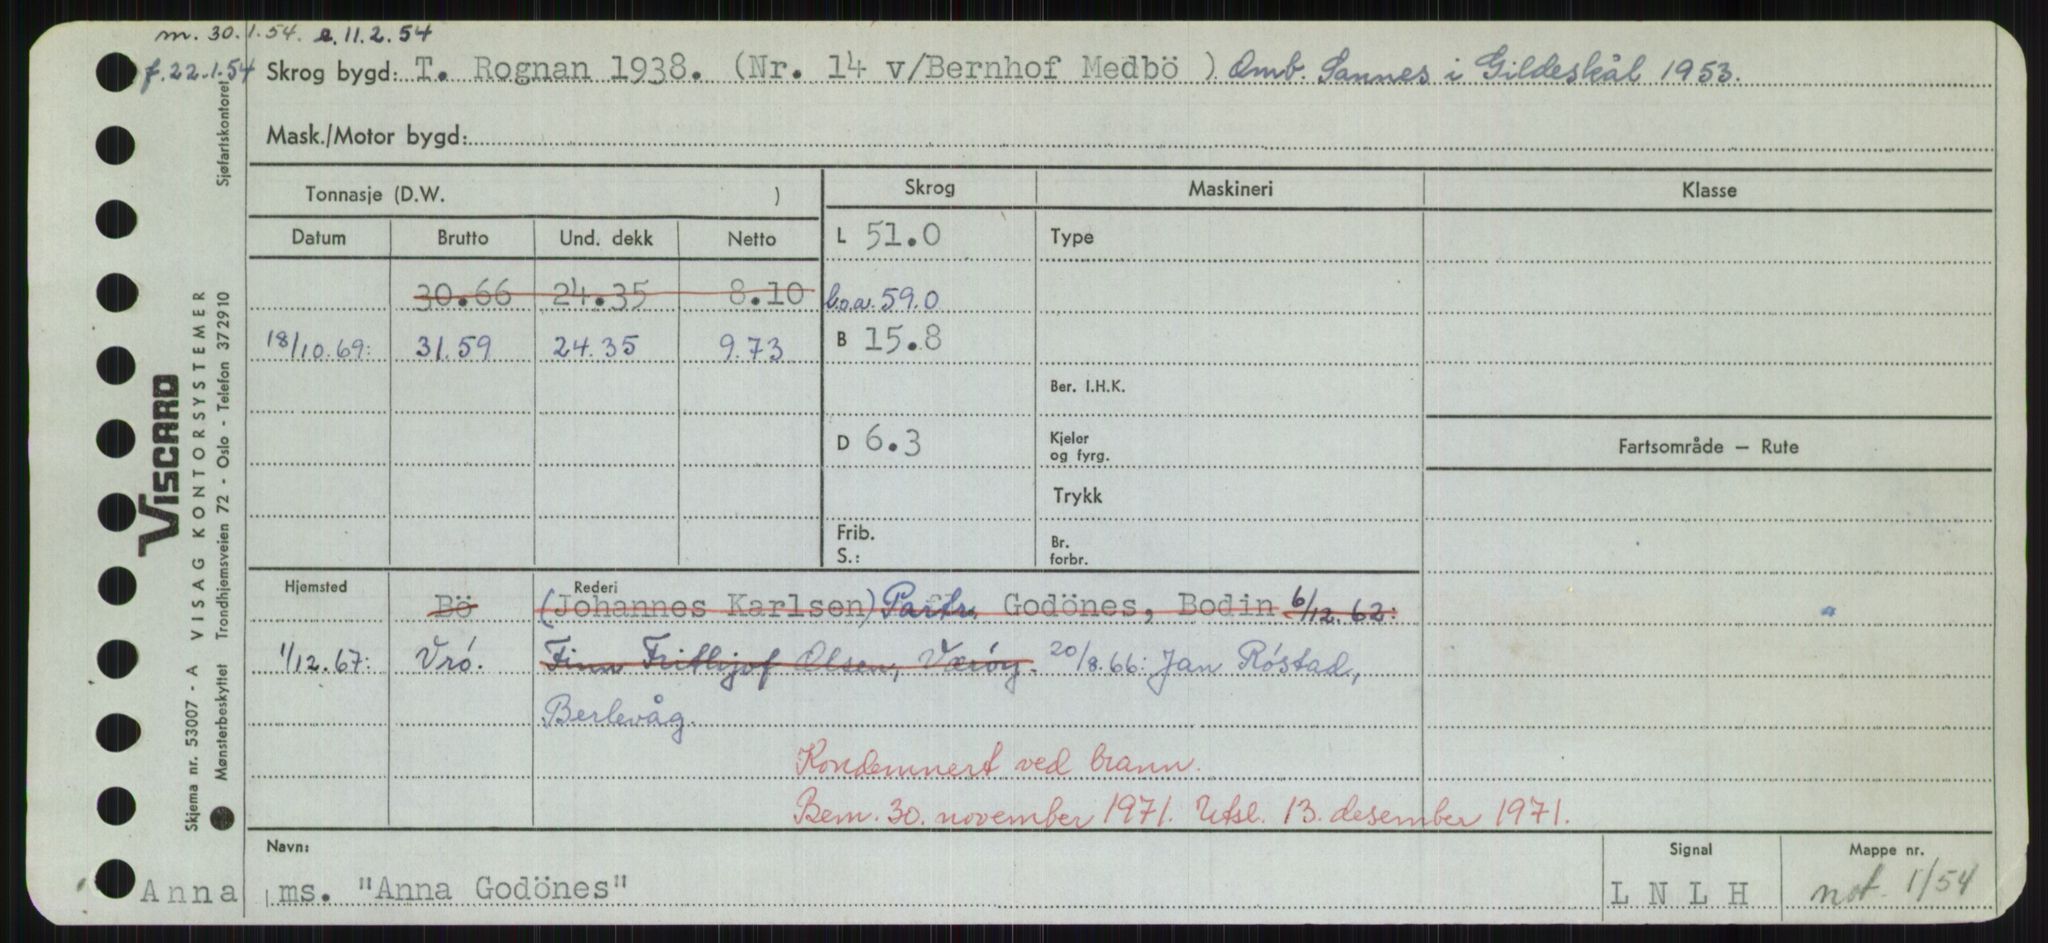 m. 30.1.54. e. 11.2.54
f. 22.1.54 Skrog bygd: T. Rognan 1938. (Nr. 14 v/Bernhof Medbö ) Omb. Sannes i Gildeskål 1953.
Mask./Motor bygd:
Tonnasje (D.W. ) Skrog Maskineri Klasse
Datum Brutto Und. dekk Netto L 51.0 Type
30.66 24.35 8.10 l.o.a. 59.0
18/10.69: 31.59 24.35 9.73 B 15.8
Ber. I.H.K.
D 6.3 Kjeler og fyrg. Fartsområde — Rute
Trykk
Frib. S.: Br. forbr.
Hjemsted Rederi
Bö (Johannes Karlsen) Partr. Godönes, Bodin 6/12.62:
1/12.67: Vrö. Finn Frithjof Olsen, Værøy. 20/8.66: Jan Röstad,
Berlevåg.
Kondemnert ved brann.
Bem. 30. november 1971. Utsl. 13. desember 1971.
Navn: Signal Mappe nr.
Anna ms. "Anna Godönes" LNLH not. 1/54
Skjema nr. 53007 - A VISAG KONTORSYSTEMER
Mønsterbeskyttet Trondhjemsveien 72 - Oslo - Telefon 372910 Sjøfartskontoret
VISCARD